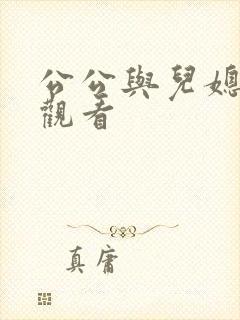 公公與兒媳
觀看
真庸